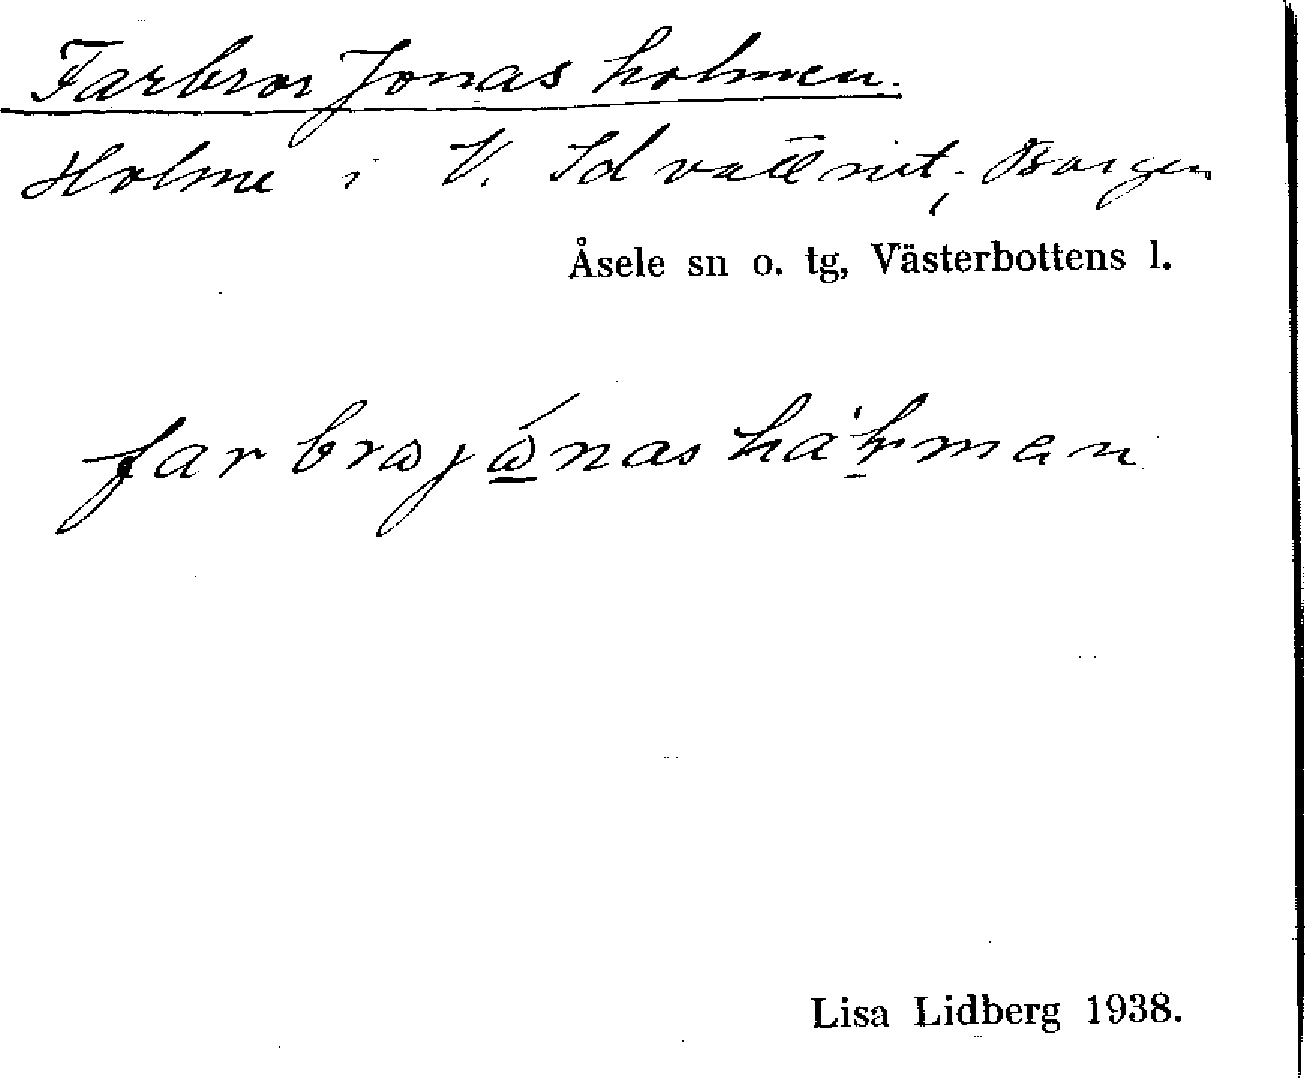 Farbror Jonas holmen.
Holme i V. Idvattnet, Borgen
Åsele sn o. tg, Västerbottens l.
Lisa Lidberg 1938.